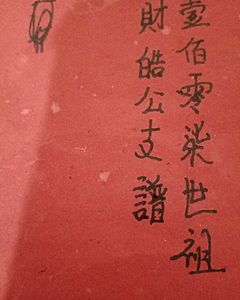 壹佰零柒世祖
財皓公支譜